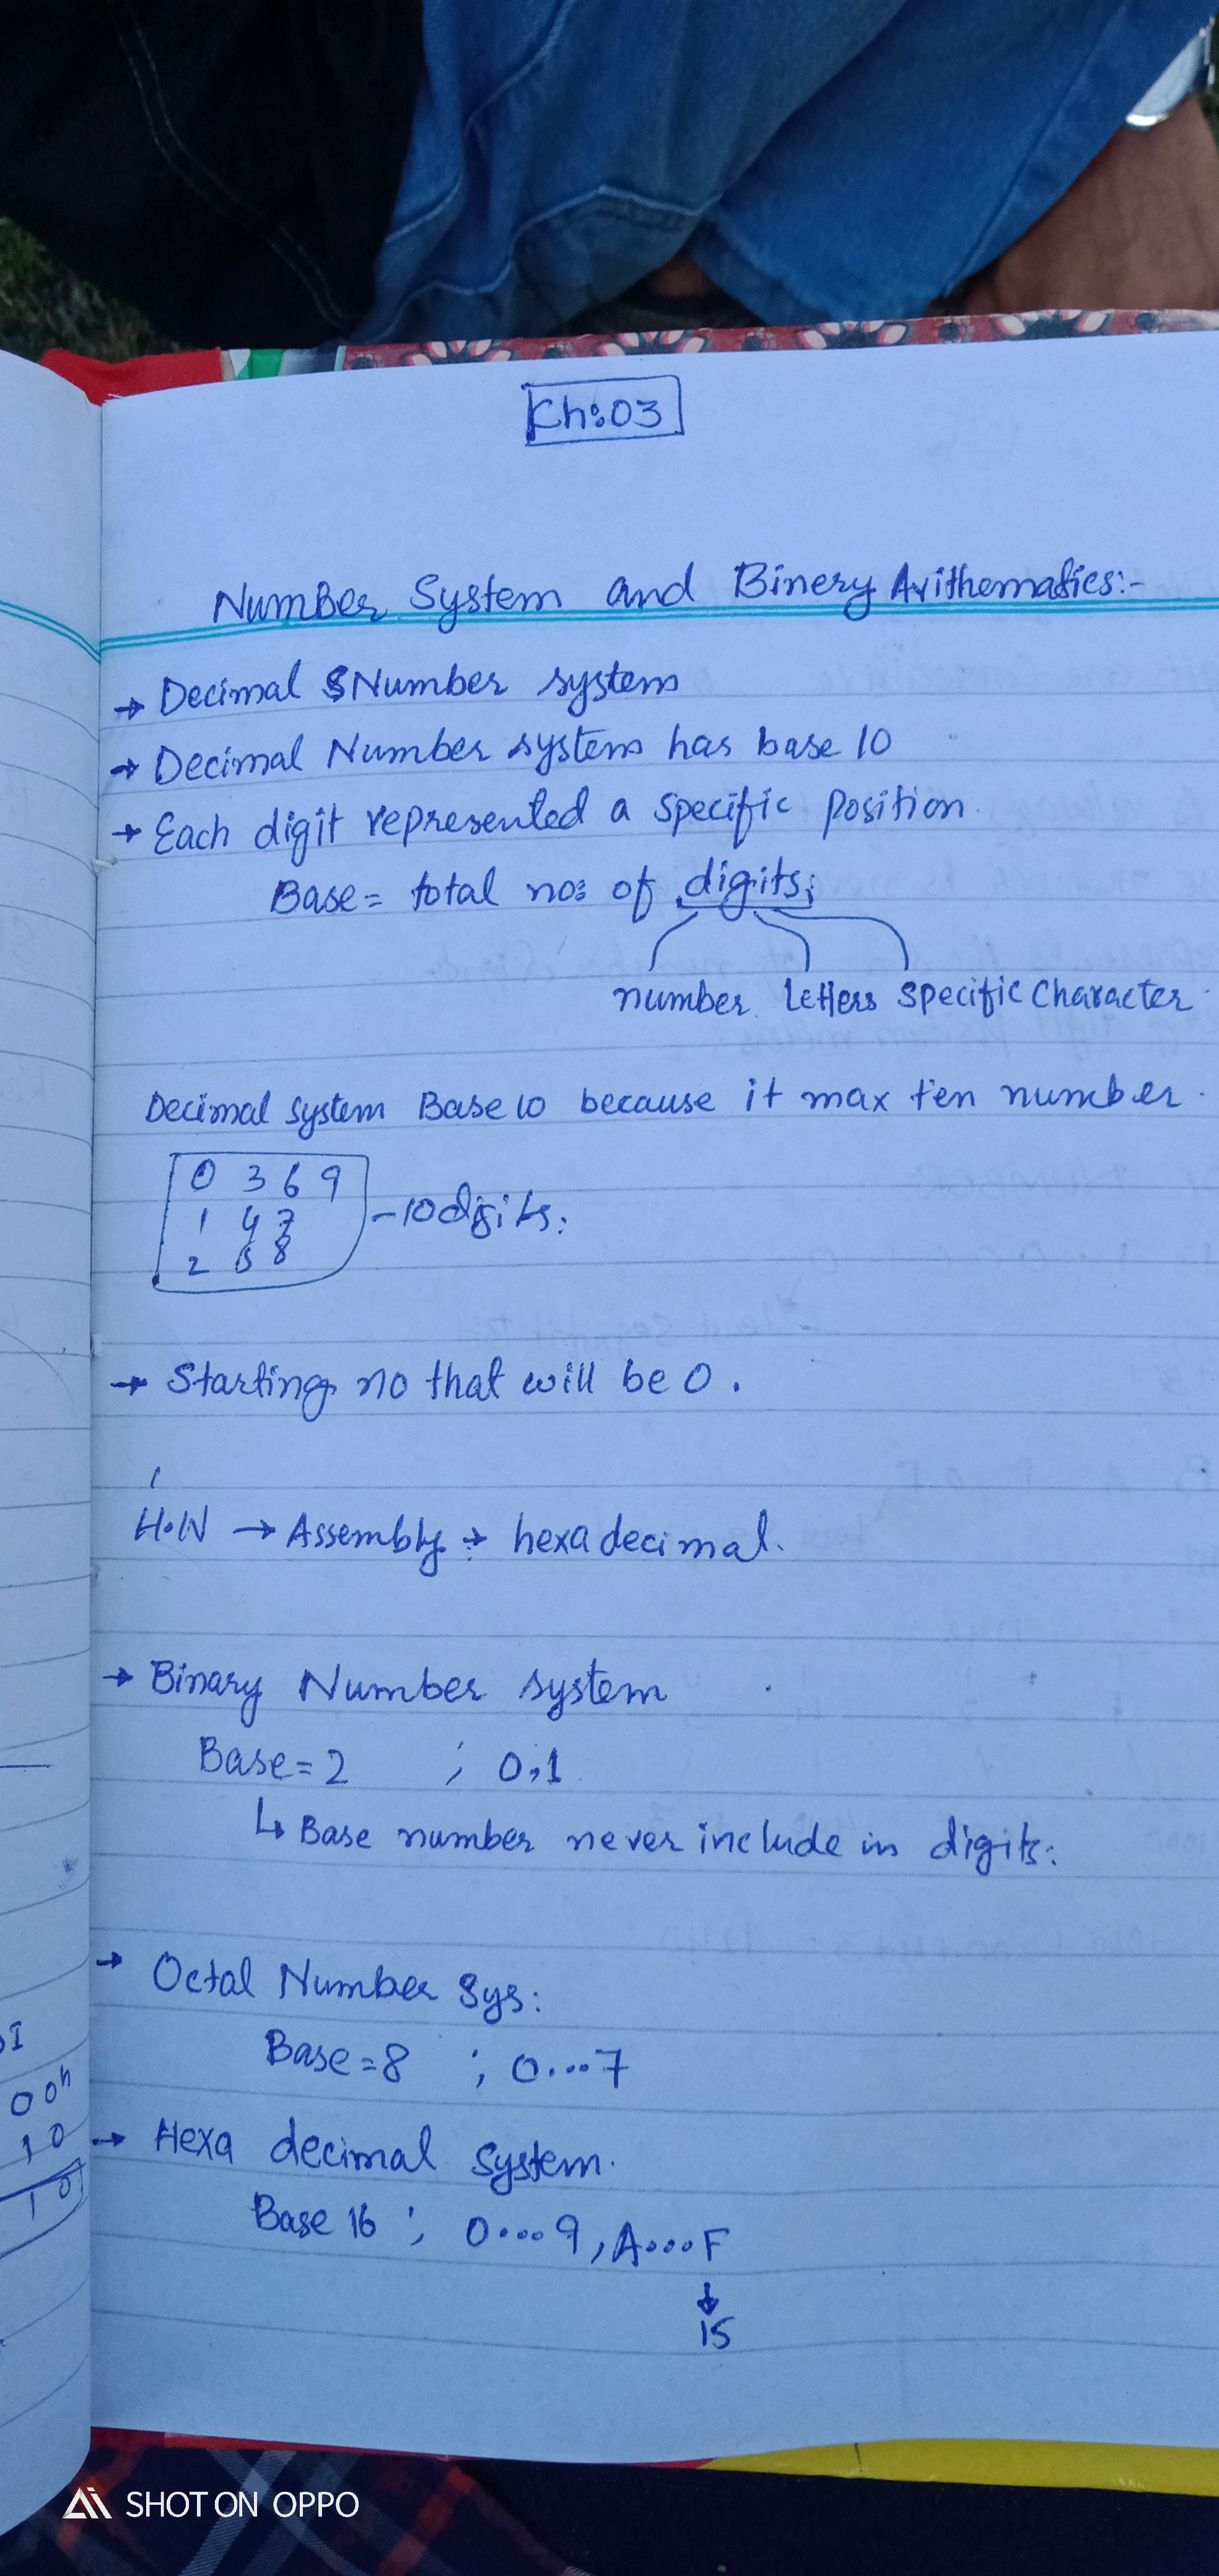 Ch:03
Number System and Binery Arithematics:-
→ Decimal SNumber system
→ Decimal Number system has base 10
→ Each digit represented a specific position.
Base = total no: of digits;
number letters specific character.
Decimal system Base 10 because it max ten number.
0 3 6 9
1 4 7 -10 digits:
2 5 8
→ Starting no that will be 0.
H.W → Assembly → hexa decimal.
→ Binary Number system
Base = 2 ; 0,1
↳ Base number never include in digits:
→ Octal Number Sys:
Base = 8 ; 0...7
→ Hexa decimal system.
Base 16 ; 0...9, A...F
↓
15
00h
10
10
SHOT ON OPPO